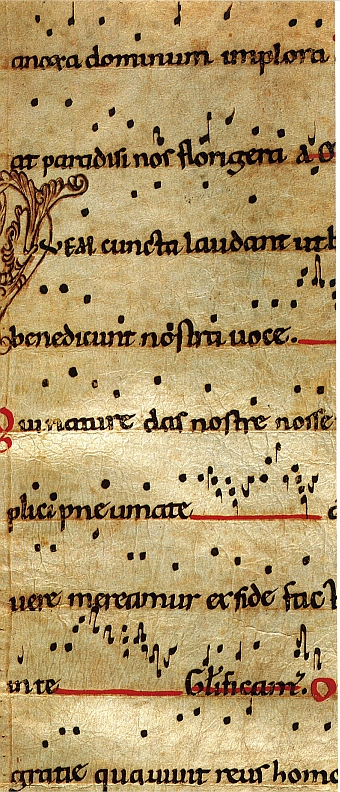 anoxa dominum implora
at paradisi nos florigera a
uem cuncta laudant ut b
benedicunt nostra uoce.
Qui nature das nostre nosse
plici pneumate
uere mereamur ex fide fac
in te Glificam̄.
gratie qua uiuit reus homo